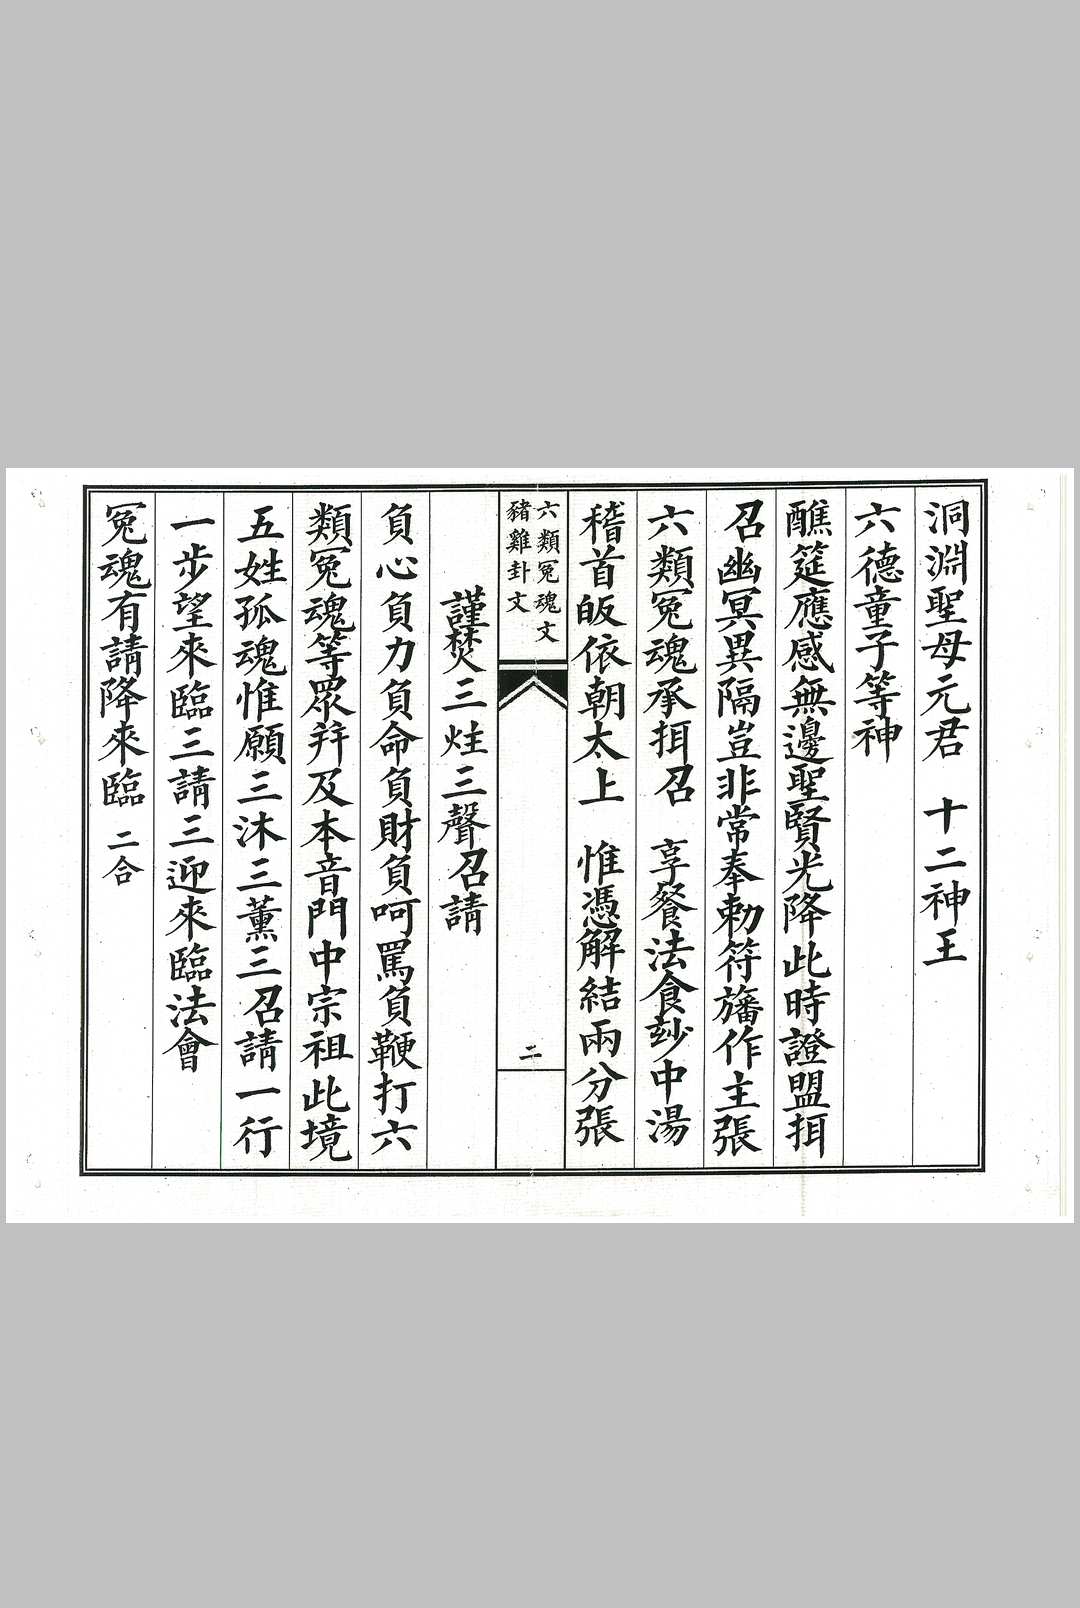 洞淵聖母元君　十二神王
六德童子等神
醮筵應感無邊聖賢光降此時證盟拑
召幽冥異隔豈非常奉勅符旛作主張
六類冤魂承拑召　享餐法食玅中湯
稽首皈依朝太上　惟憑解結兩分張
六類冤魂文
豬雞卦文
二
謹焚三炷三聲召請
負心負力負命負財負呵罵負鞭打六
類冤魂等眾并及本音門中宗祖此境
五姓孤魂惟願三沐三薰三召請一行
一步望來臨三請三迎來臨法會
冤魂有請降來臨　二合